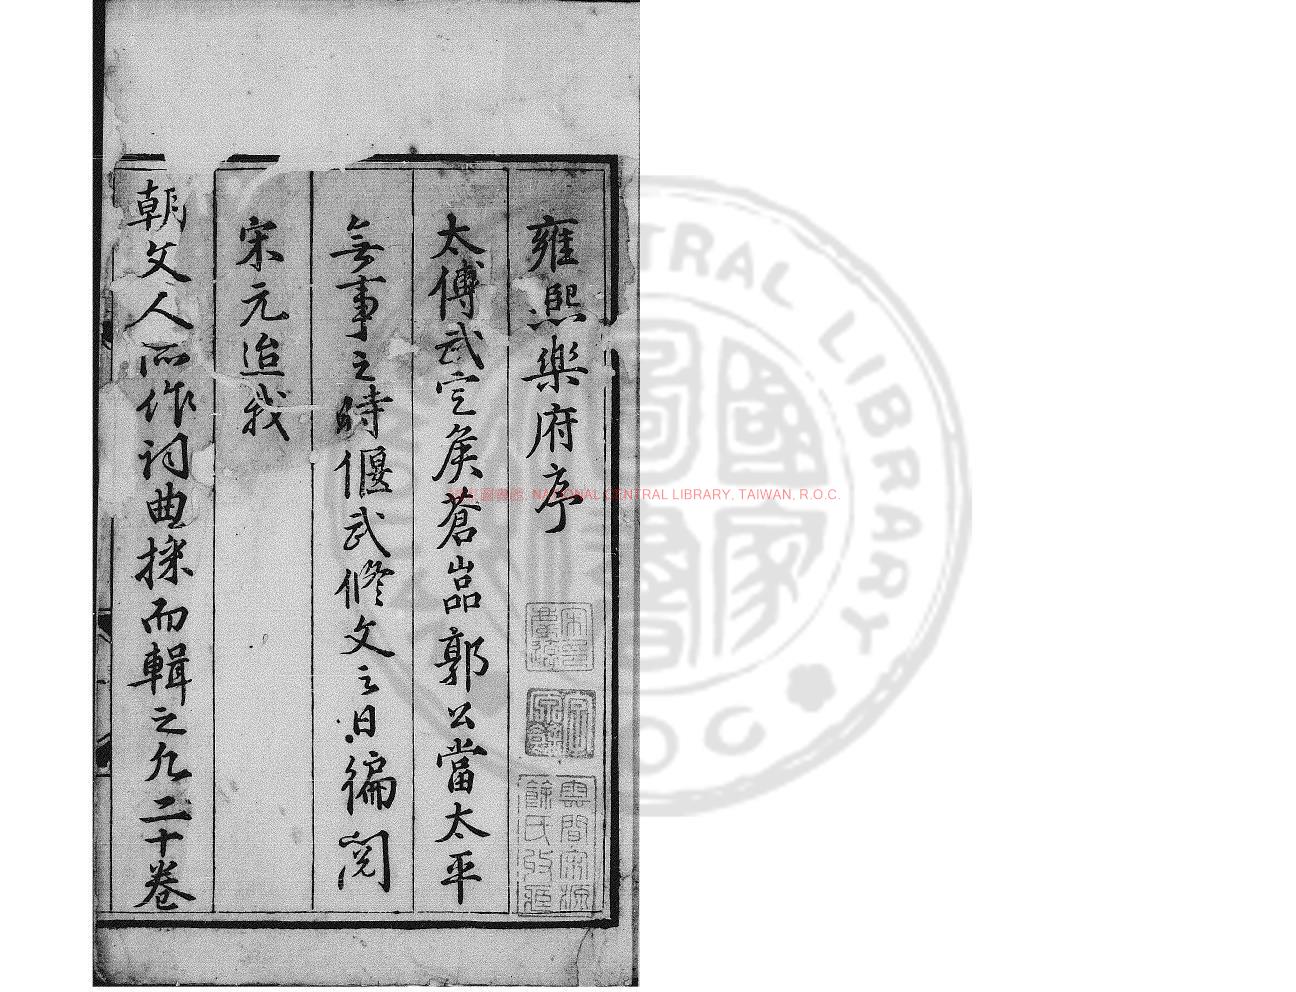 雍熙樂府序
太傅武定矦蒼嵓郭公當太平
無事之時偃武修文之日徧閱
宋元迨我
朝文人所作詞曲採而輯之凡二十卷
NATIONAL CENTRAL LIBRARY, TAIWAN, R.O.C.
CENTRAL LIBRARY
國家圖書